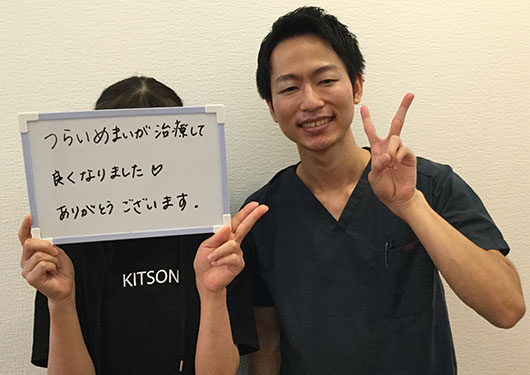 つらいめまいが治療して
良くなりました♡
ありがとうございます。
KITSON